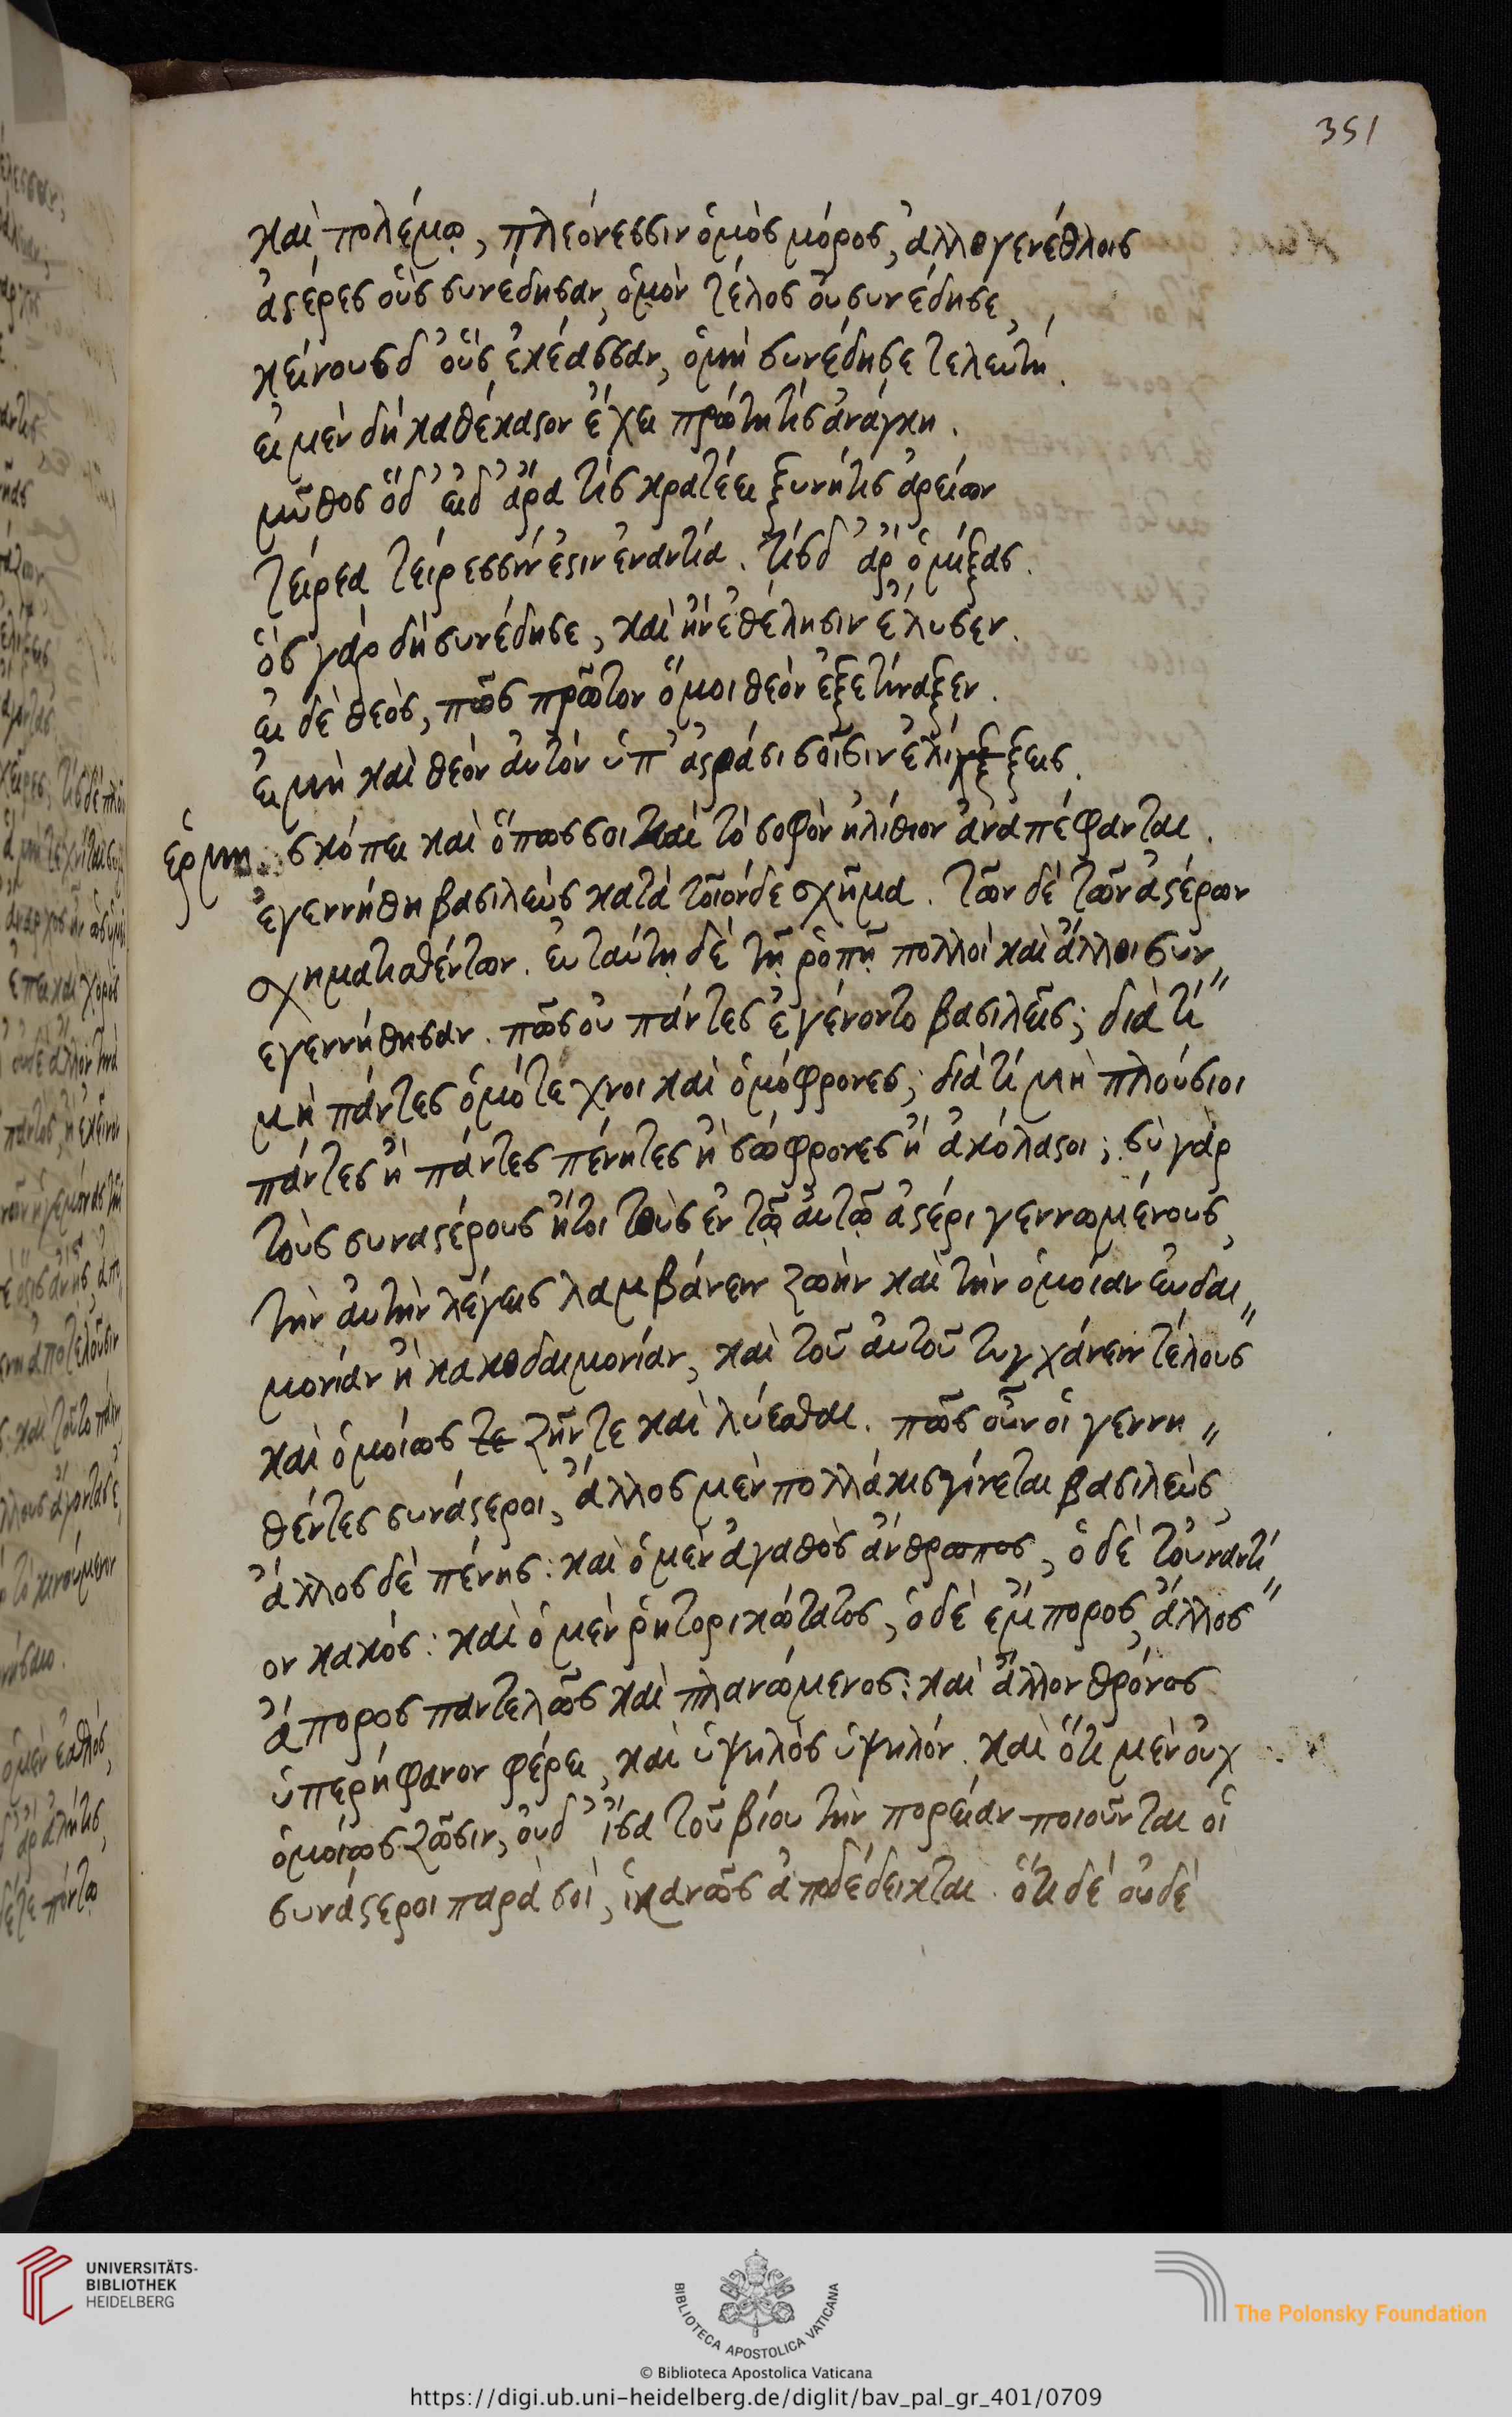 351
καὶ πολέμῳ, πλεόνεσσιν ὁμὸς μόρος, ἀλλογενέθλοις
ἀϛέρες οὓς συνέδησαν, ὁμὸν τέλος οὐ συνέδησε,
κείνους δ' οὓς ἐκέασσαν, ὁμὴ συνέδησε τελευτή.
εἰ μὲν δὴ καθέκαϛον ἔχει πρώτη τὶς ἀνάγκη.
μῦθος ὅδ' εἰδ' ἄρα τὶς κρατέει ξυνή τις ἀρείων
τείρεα τείρεσσιν ἐϛιν ἐναντία. τίς δ' ἄρ ὁ μίξας.
ὃς γὰρ δὴ συνέδησε, καὶ ἢν ἐθέλησιν ἔλυσεν.
εἰ δὲ θεὸς, πῶς πρῶτον ὅ μοι θεὸν ἐξετίναξεν.
εἰ μὴ καὶ θεὸν αὐτὸν ὑπ' ἀϛράσι σοῖσιν ἑλίξεις.
ἑρμη σκόπει καὶ ὅπως σοι καὶ τὸ σοφὸν ἠλίθιον ἀναπέφανται.
ἐγεννήθη βασιλεὺς κατὰ τοιόνδε σχῆμα. τῶν δὲ τῶν ἀϛέρων
σχηματισθέντων. ἐν ταύτῃ δὲ τῇ ῥοπῇ πολλοὶ καὶ ἄλλοι συν〃
εγεννήθησαν. πῶς οὐ πάντες ἐγένοντο βασιλεῖς; διὰ τί
μὴ πάντες ὁμότεχνοι καὶ ὁμόφρονες; διὰ τί μὴ πλούσιοι
πάντες ἢ πάντες πένητες ἢ σώφρονες ἢ ἀκόλαϛοι; σὺ γὰρ
τοὺς συναϛέρους ἤτοι τοὺς ἐν τῷ αὐτῷ ἀϛέρι γεννωμένους,
τὴν αὐτὴν λέγεις λαμβάνειν ζωὴν καὶ τὴν ὁμοίαν εὐδαι〃
μονίαν ἢ κακοδαιμονίαν, καὶ τοῦ αὐτοῦ τυγχάνειν τέλους
καὶ ὁμοίως τε ζῆν τε καὶ λύεσθαι. πῶς οὖν οἱ γεννη〃
θέντες συνάϛεροι, ἄλλος μὲν πολλάκις γίνεται βασιλεὺς,
ἄλλος δὲ πένης: καὶ ὁ μὲν ἀγαθὸς ἄνθρωπος, ὁ δὲ τοὐναντί〃
ον κακός: καὶ ὁ μὲν ῥητορικώτατος, ὁ δὲ ἔμπορος, ἄλλος
ἄπορος παντελῶς καὶ πλανώμενος: καὶ ἄλλον θρόνος
ὑπερήφανον φέρει, καὶ ὑψηλὸς ὑψηλόν. καὶ ὅτι μὲν οὐχ
ὁμοίως ζῶσιν, οὐδ' ἴσα τοῦ βίου τὴν πορείαν ποιοῦνται οἱ
συνάϛεροι παρὰ σοὶ, ἱκανῶς ἀποδέδεικται. ὅτι δὲ οὐδὲ
UNIVERSITÄTS-
BIBLIOTHEK
HEIDELBERG
BIBLIOTECA APOSTOLICA VATICANA
The Polonsky Foundation
© Biblioteca Apostolica Vaticana
https://digi.ub.uni-heidelberg.de/diglit/bav_pal_gr_401/0709